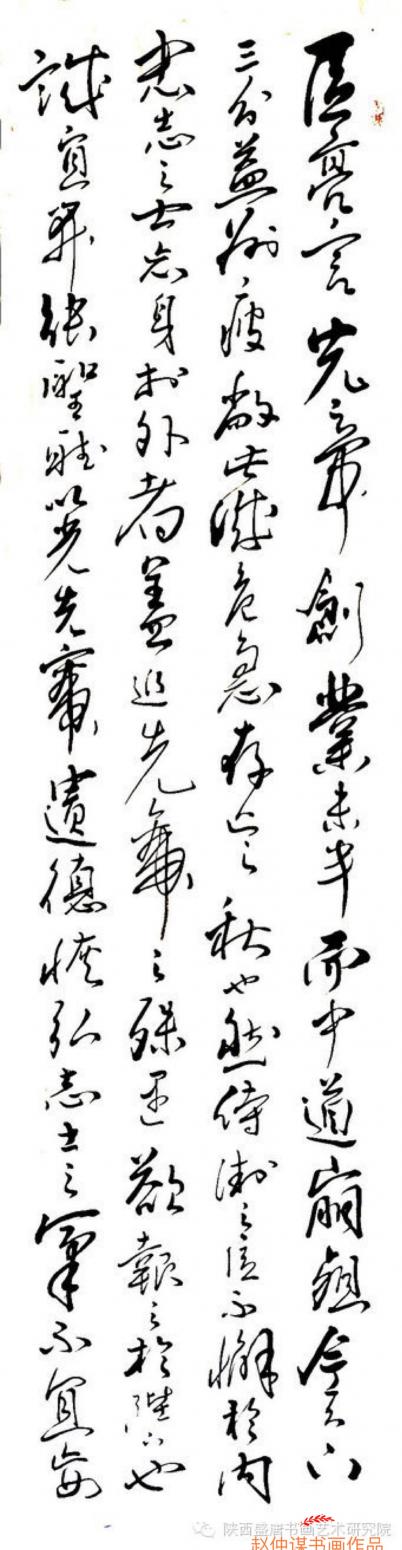 臣亮言先帝創業未半而中道崩殂今天下
三分益州疲敝此誠危急存亡之秋也然侍衛之臣不懈於内
忠志之士忘身於外者蓋追先帝之殊遇欲報之於陛下也
誠宜開張聖聽以光先帝遺德恢弘志士之氣不宜妄
陕西盛唐书画艺术研究院
赵仲谋书画作品